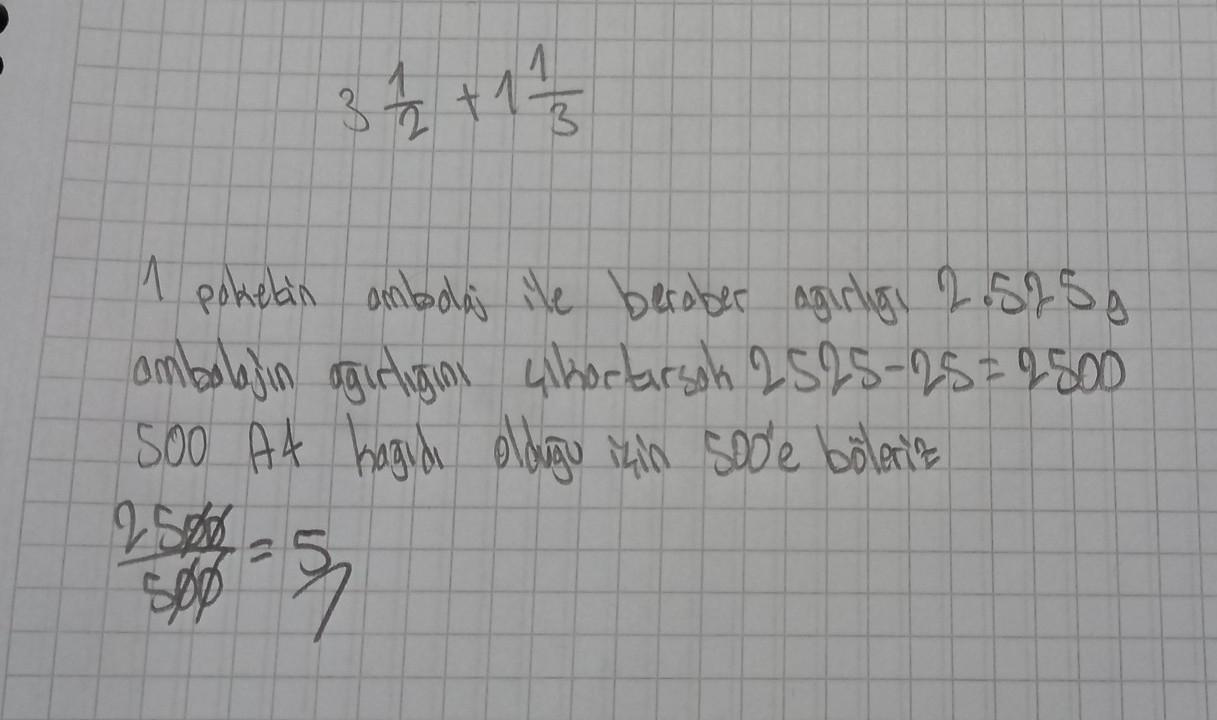 3 1/2 + 1 1/3
1 paketin ambalaj ile beraber agırlıgı 2.525 g
ambalajın agırlıgını çıkartırsak 2525-25=2500
500 A4 kagıdı oldugu için 500'e böleriz
2500/500 = 5